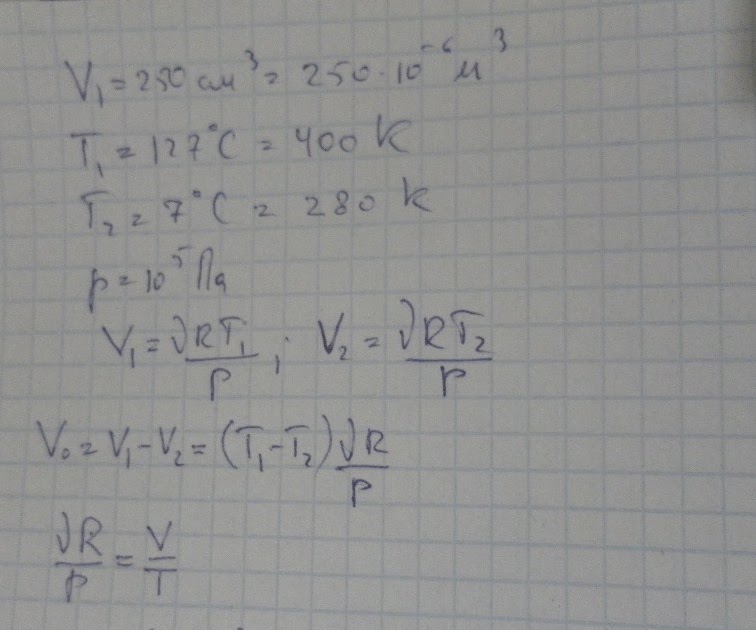 V₁ = 250 см³ = 250·10⁻⁶ м³
T₁ = 127°C = 400 K
T₂ = 7°C = 280 K
p = 10⁵ Па
V₁ = νRT₁/p ; V₂ = νRT₂/p
V₀ = V₁ - V₂ = (T₁ - T₂) νR/p
νR/p = V/T